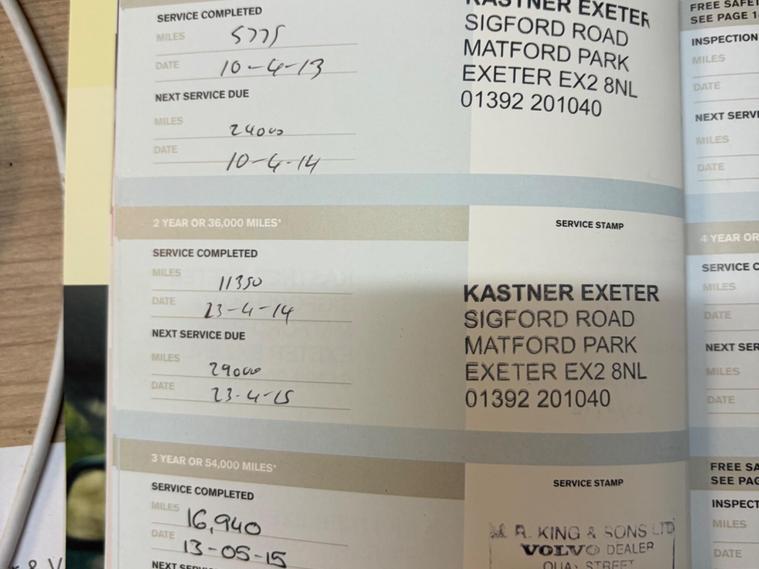 SERVICE COMPLETED
MILES 5775
DATE 10-4-13
NEXT SERVICE DUE
MILES 24000
DATE 10-4-14
KASTNER EXETER
SIGFORD ROAD
MATFORD PARK
EXETER EX2 8NL
01392 201040
2 YEAR OR 36,000 MILES*
SERVICE STAMP
SERVICE COMPLETED
MILES 11350
DATE 23-4-14
NEXT SERVICE DUE
MILES 29000
DATE 23-4-15
KASTNER EXETER
SIGFORD ROAD
MATFORD PARK
EXETER EX2 8NL
01392 201040
3 YEAR OR 54,000 MILES*
SERVICE STAMP
SERVICE COMPLETED
MILES 16,940
DATE 13-05-15
NEXT
R. KING & SONS LTD
VOLVO DEALER
QUAY STREET
FREE
SEE PAGE
INSPECTION
MILES
DATE
NEXT
MILES
DATE
4 YEAR OR
SERVICE
MILES
DATE
NEXT
MILES
DATE
FREE
SEE
MILES
DATE